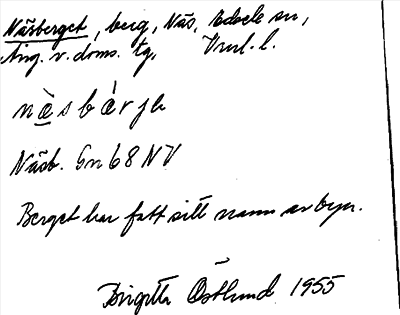 Näsberget, berg, Näs, Edsele sn,
Ång. v. doms. tg, Vnl. l.
nä̀sbárje
Näsb. Gn 68 NV
Berget har fått sitt namn av byn.
Birgitta Östlund 1955